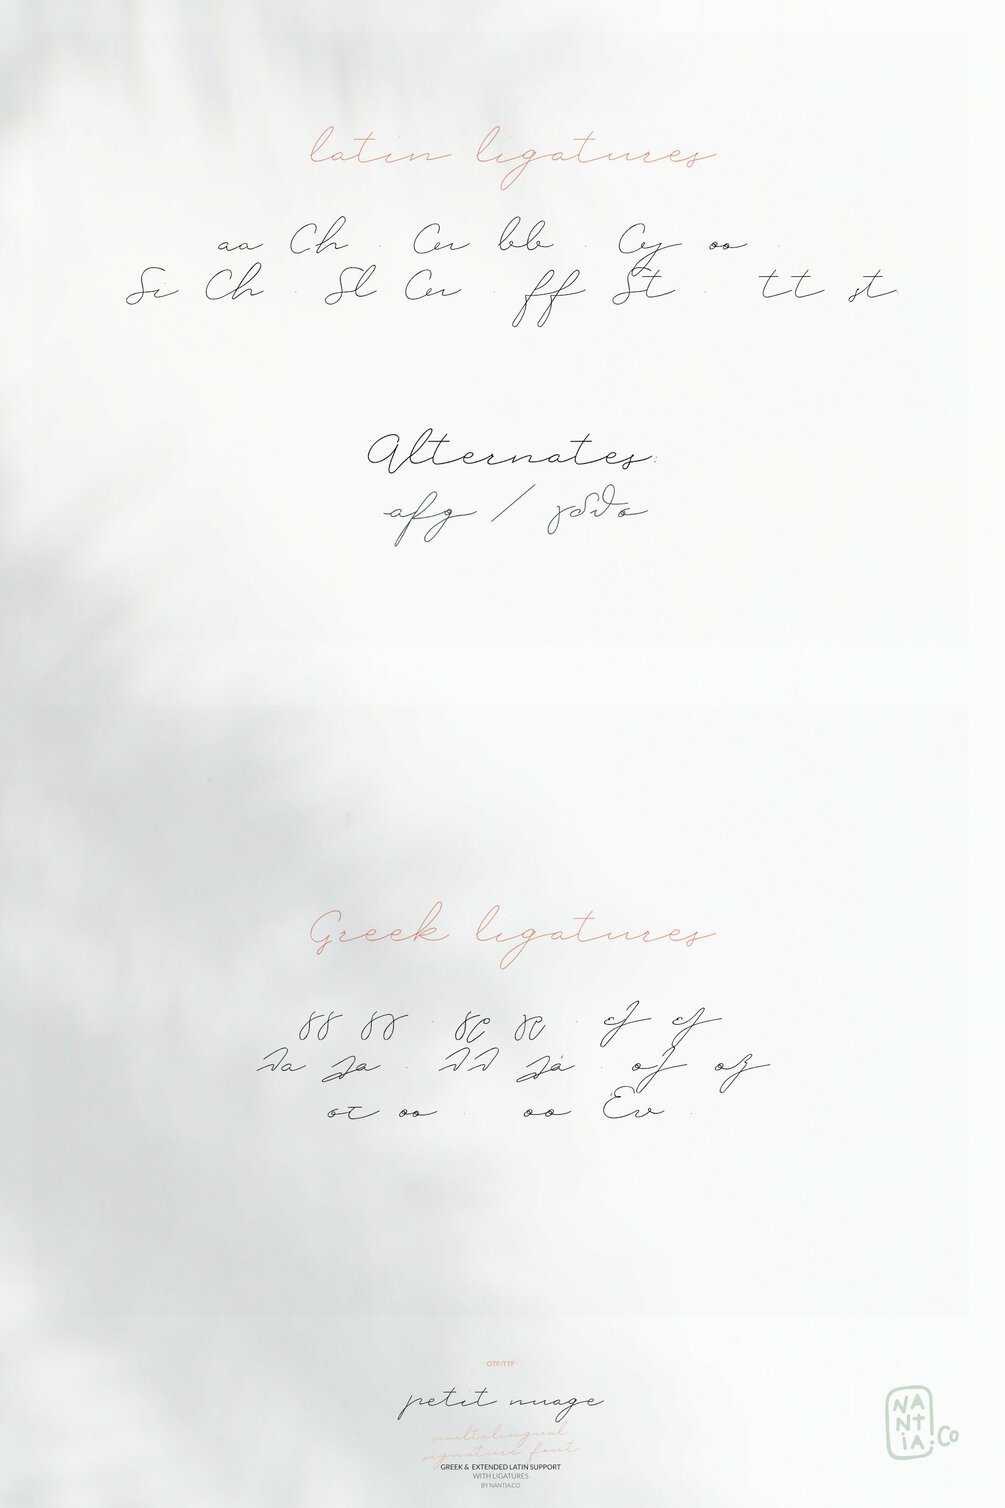 latin ligatures
aa Ch . Cer bb . Cy oo .
Si Ch . Sl Cer . ff St . tt st.
Alternates:
afg / γδθσ
Greek ligatures
γγ γγ
λα λα . λλ λά
στ οο . οο Ευ .
·OTF/TTF·
petit nuage
multilingual
signature font
GREEK & EXTENDED LATIN SUPPORT
WITH LIGATURES
BY NANTIA.CO
NANTiA.Co